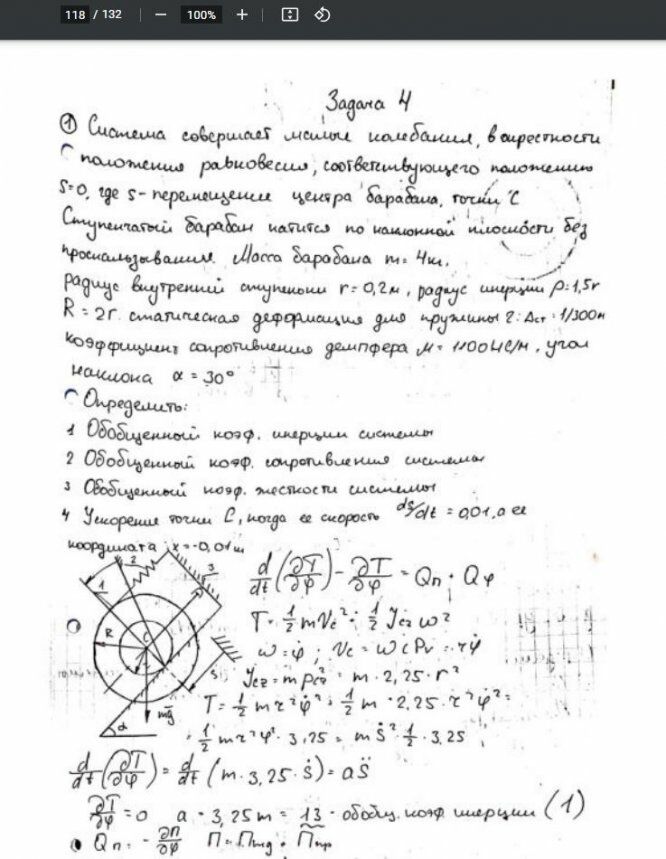 118 / 132 100%
Задача 4
① Система совершает малые колебания, в окрестности
положения равновесия, соответствующего положению
S=0, где s - перемещение центра барабана, точки C
Ступенчатый барабан катится по наклонной плоскости без
проскальзывания. Масса барабана m = 4кг.
радиус внутренней ступеньки r = 0,2м, радиус инерции ρ=1,5r
R = 2r. статическая деформация для пружины 2: Δст = 1/300м
коэффициент сопротивления демпфера μ = 1100 Нс/м, угол
наклона α = 30°
Определить:
1 Обобщенный коэф. инерции системы
2 Обобщенный коэф. сопротивления системы
3 Обобщенный коэф. жесткости системы
4 Ускорение точки C, когда ее скорость ds/dt = 0,01, а ее
координата x = -0,01м
1 2 3
R C S
mg
α
d/dt (∂T/∂φ̇) - ∂T/∂φ = Qп + Qφ
T = 1/2 mVc² + 1/2 Jcz ω²
ω = φ̇ ; Vc = ωCPv = rφ̇
Jcz = mρcz² = m · 2,25 · r²
T = 1/2 m r² φ̇² + 1/2 m · 2,25 · r² φ̇² =
= 1/2 m r² φ̇² · 3,25 = m ṡ² · 1/2 · 3,25
d/dt (∂T/∂φ̇) = d/dt (m · 3,25 · ṡ) = a s̈
∂T/∂φ = 0 a = 3,25m = 13 - обобщ. коэф инерции (1)
Qп = - ∂П/∂φ П = Пmg + Ппр